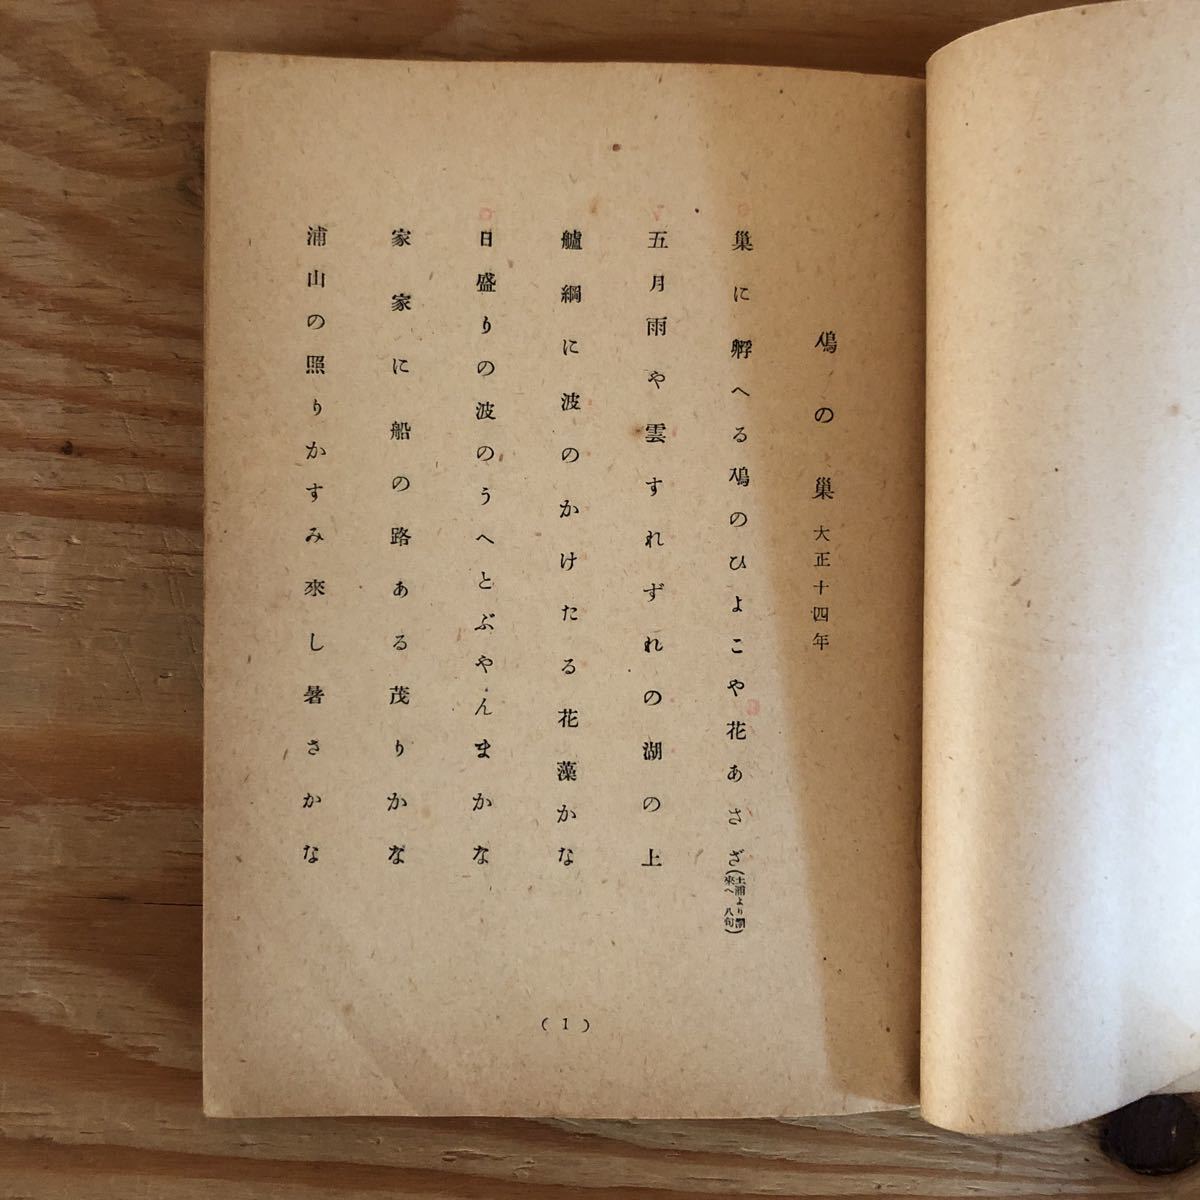 鳰の巢 大正十四年
巢に孵へる鳰のひよこや花あさざ(土浦より潮來へ 八句)
五月雨や雲すれずれの湖の上
艫綱に波のかけたる花藻かな
日盛りの波のうへとぶやんまかな
家家に船の路ある茂りかな
浦山の照りかすみ來し暑さかな
( 1 )